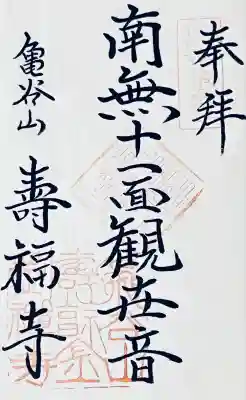 奉拝
南無十一面観世音
亀谷山
壽福寺